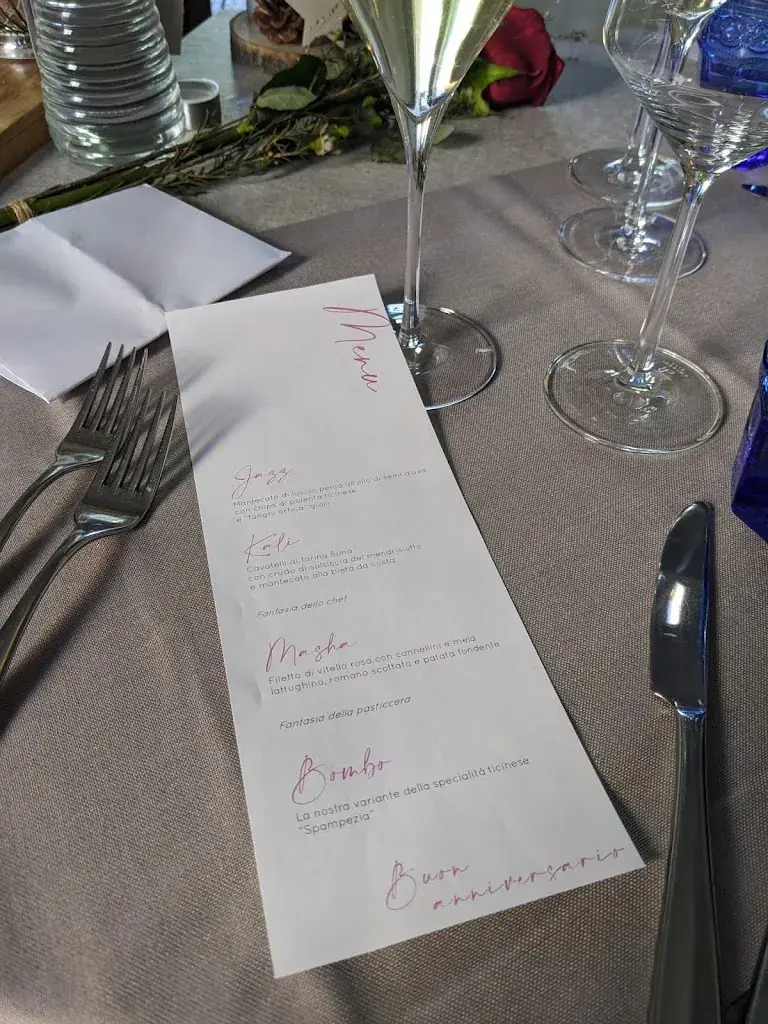 Menu
Jazz
Mantecato di luccio perca all'olio di semi d'uva
con chips di polenta ticinese
e "funghi ortica" gialli
Kali
Cavatelli di farina Bona
con crudo di salsiccia del mendrisiotto
e mantecato alla bieta da costa
Fantasia dello chef
Masha
Filetto di vitello rosa con cannellini e mela
lattughino, romano scottato e patata fondente
Fantasia della pasticcera
Bombo
La nostra variante della specialità ticinese
"Spampezia"
Buon
anniversario